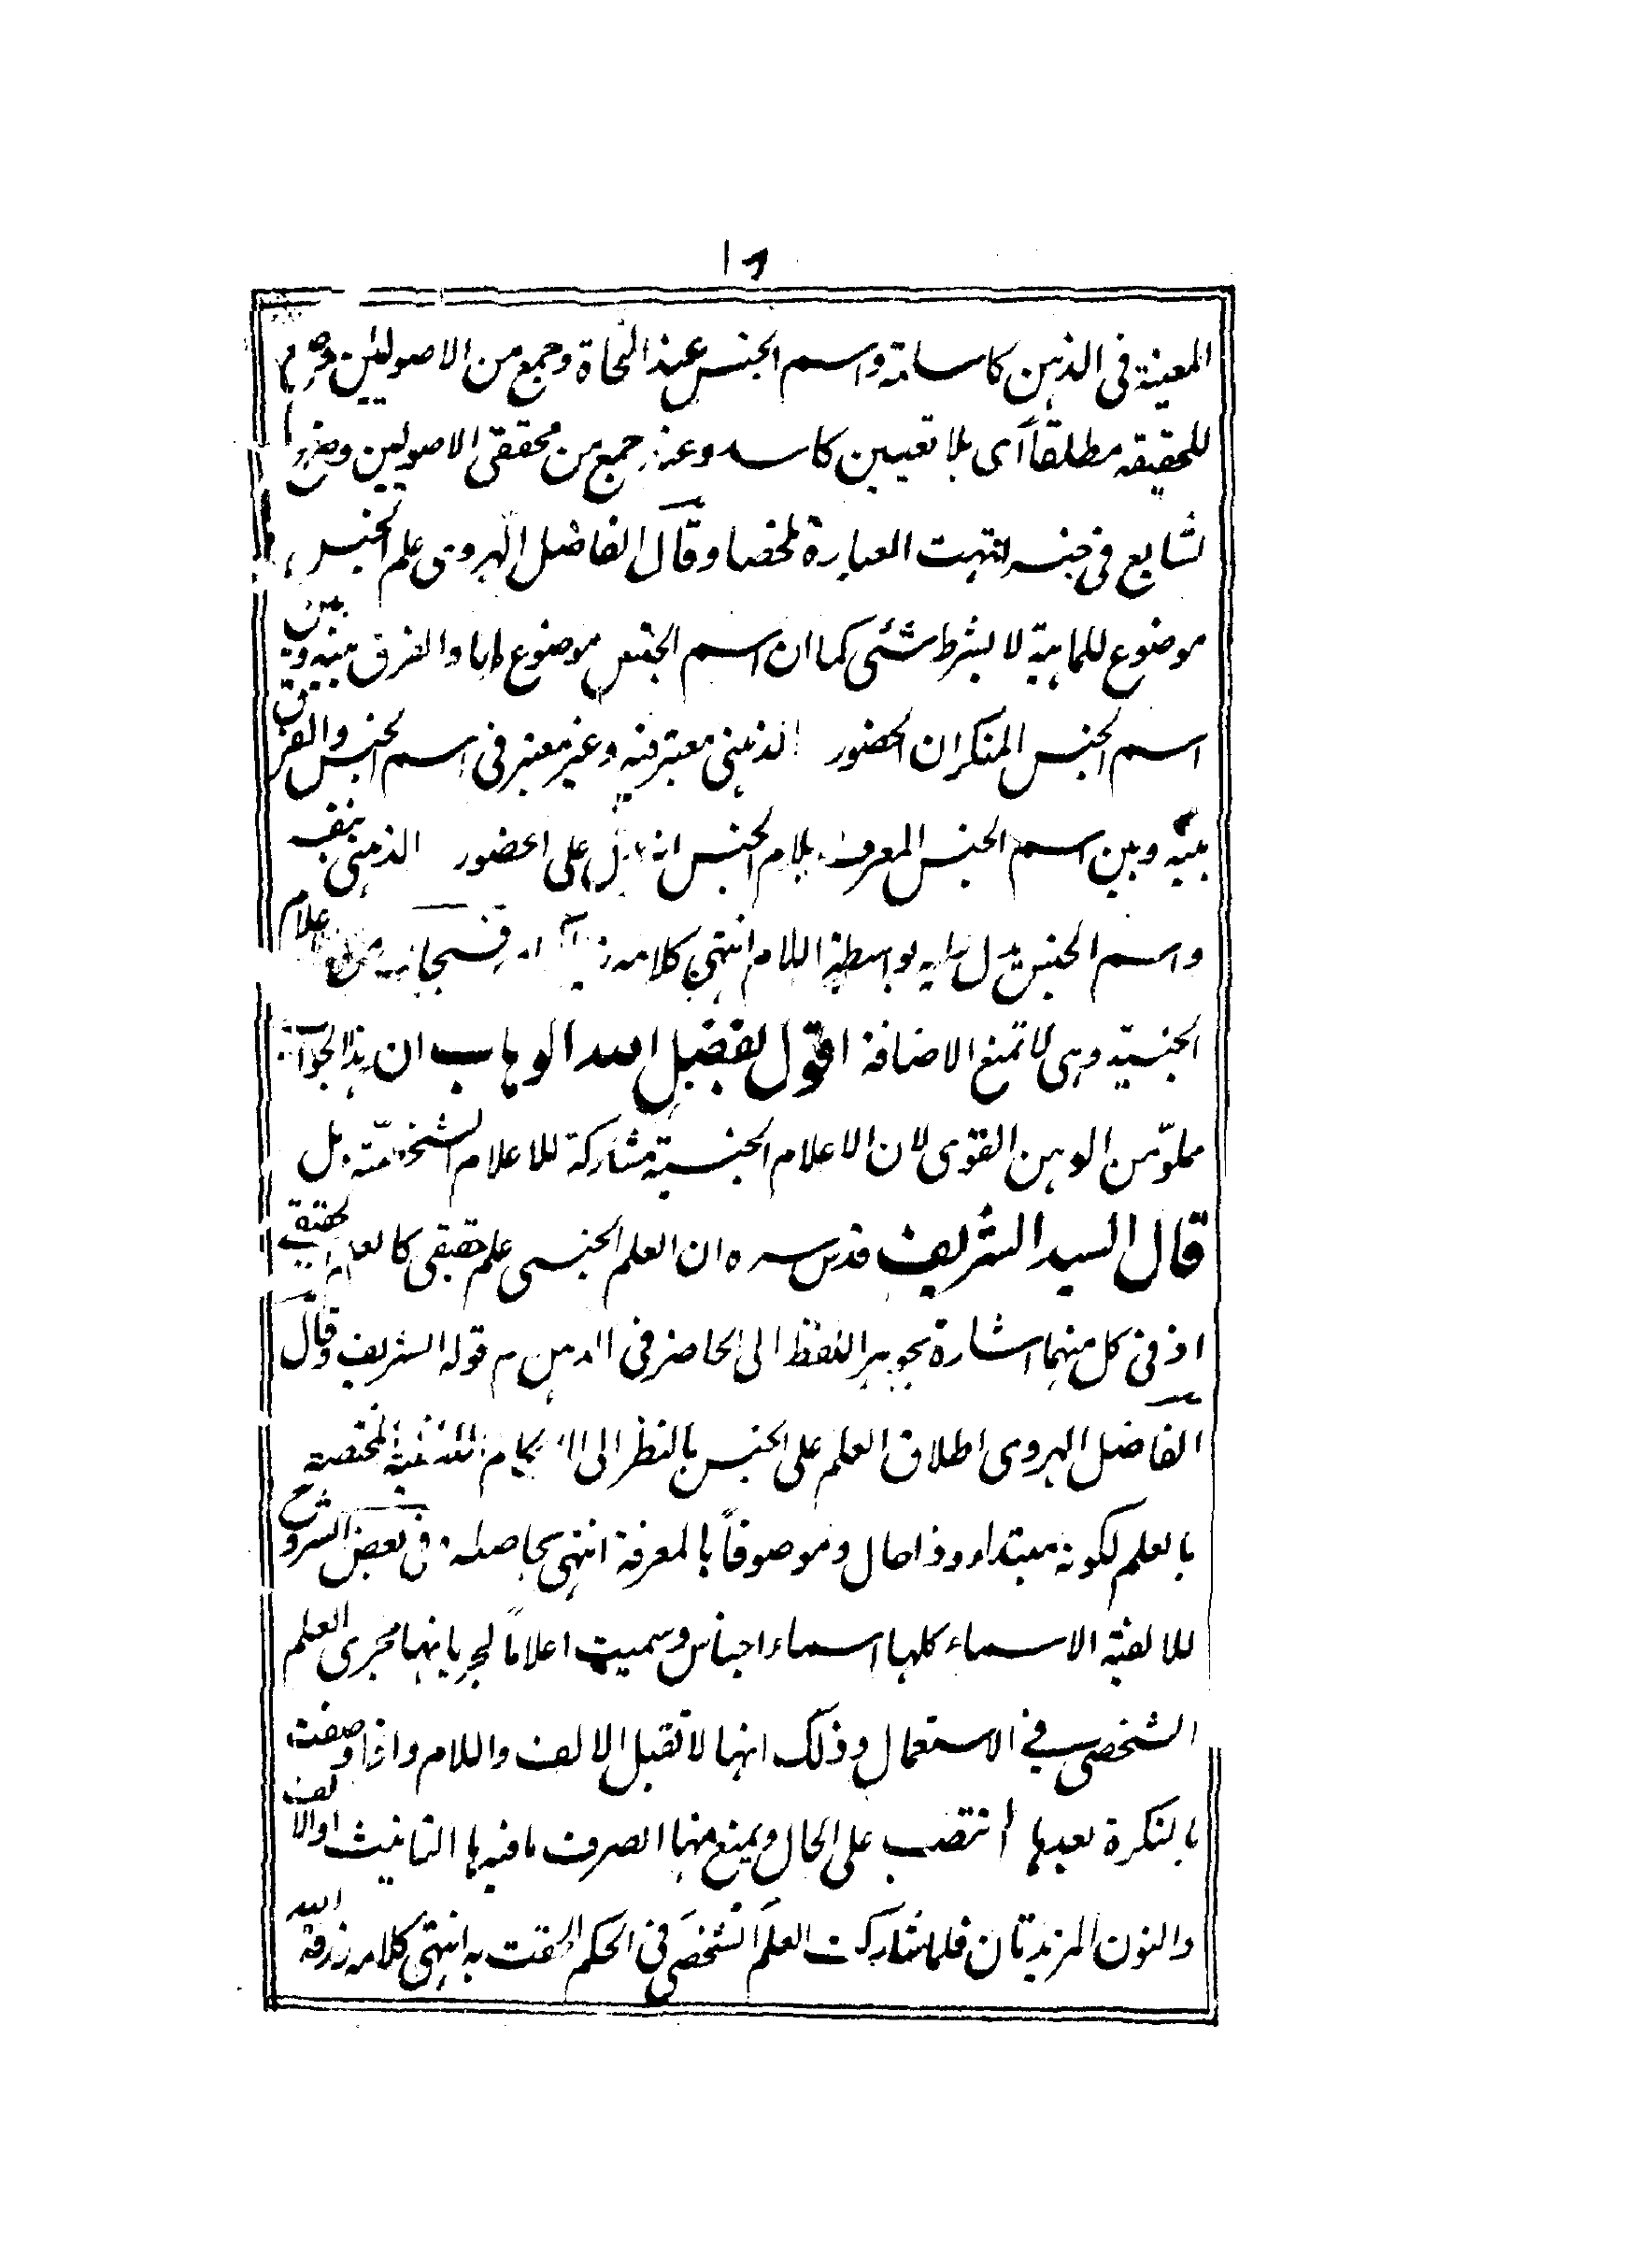 ١٦
المعينة فى الذهن كاسامة واسم الجنس عند النحاة وجمع من الاصوليين
للحقيقة مطلقاً أى بلا تعيين كاسد وعند جمع من محققى الاصوليين
لشايع فى جنسه انتهت العبارة ملخصا وقال الفاضل الهروى علم الجنس
موضوع للماهية لا بشرط شئى كما ان اسم الجنس موضوع لها والفرق بينه وبين
اسم الجنس المنكر ان الحضور الذهنى معتبر فيه وغير معتبر فى اسم الجنس والفرق
بينه وبين اسم الجنس المعرف بلام الجنس انه يدل على الحضور الذهنى بنفسه
واسم الجنس يدل عليه بواسطة اللام انتهى كلامه
الجنسيّة وهى لا تمنع الاضافة اقول بفضل الله الوهاب ان هذا الجواب
مملوّ من الوهن القوى لان الاعلام الجنسية مشاركة للاعلام الشخصيّة بل
قال السيد الشريف قدس سره ان العلم الجنسى علم حقيقى كالعلم
اذ فى كل منهما اشارة بجوهر اللفظ الى الحاضر فى الذهن م قوله الشريف وقال
الفاضل الهروى اطلاق العلم على الجنس بالنظر الى الاحكام اللفظية المختصة
بالعلم لكونه مبتداء وذا حال وموصوفاً بالمعرفة انتهى بحاصله وفى بعض الشروح
للالفية الاسماء كلها اسماء اجناس وسميت اعلاماً لجريانها مجرى العلم
الشخصى فى الاستعمال وذلك انها لا تقبل الالف واللام واذا وصفت
بالنكرة بعدها انتصب على الحال ويمنع منها الصرف ما فيه ها التانيث اوالالف
والنون المزيدتان فلما شاركت العلم الشخصى فى الحكم الحقت به انتهى كلامه